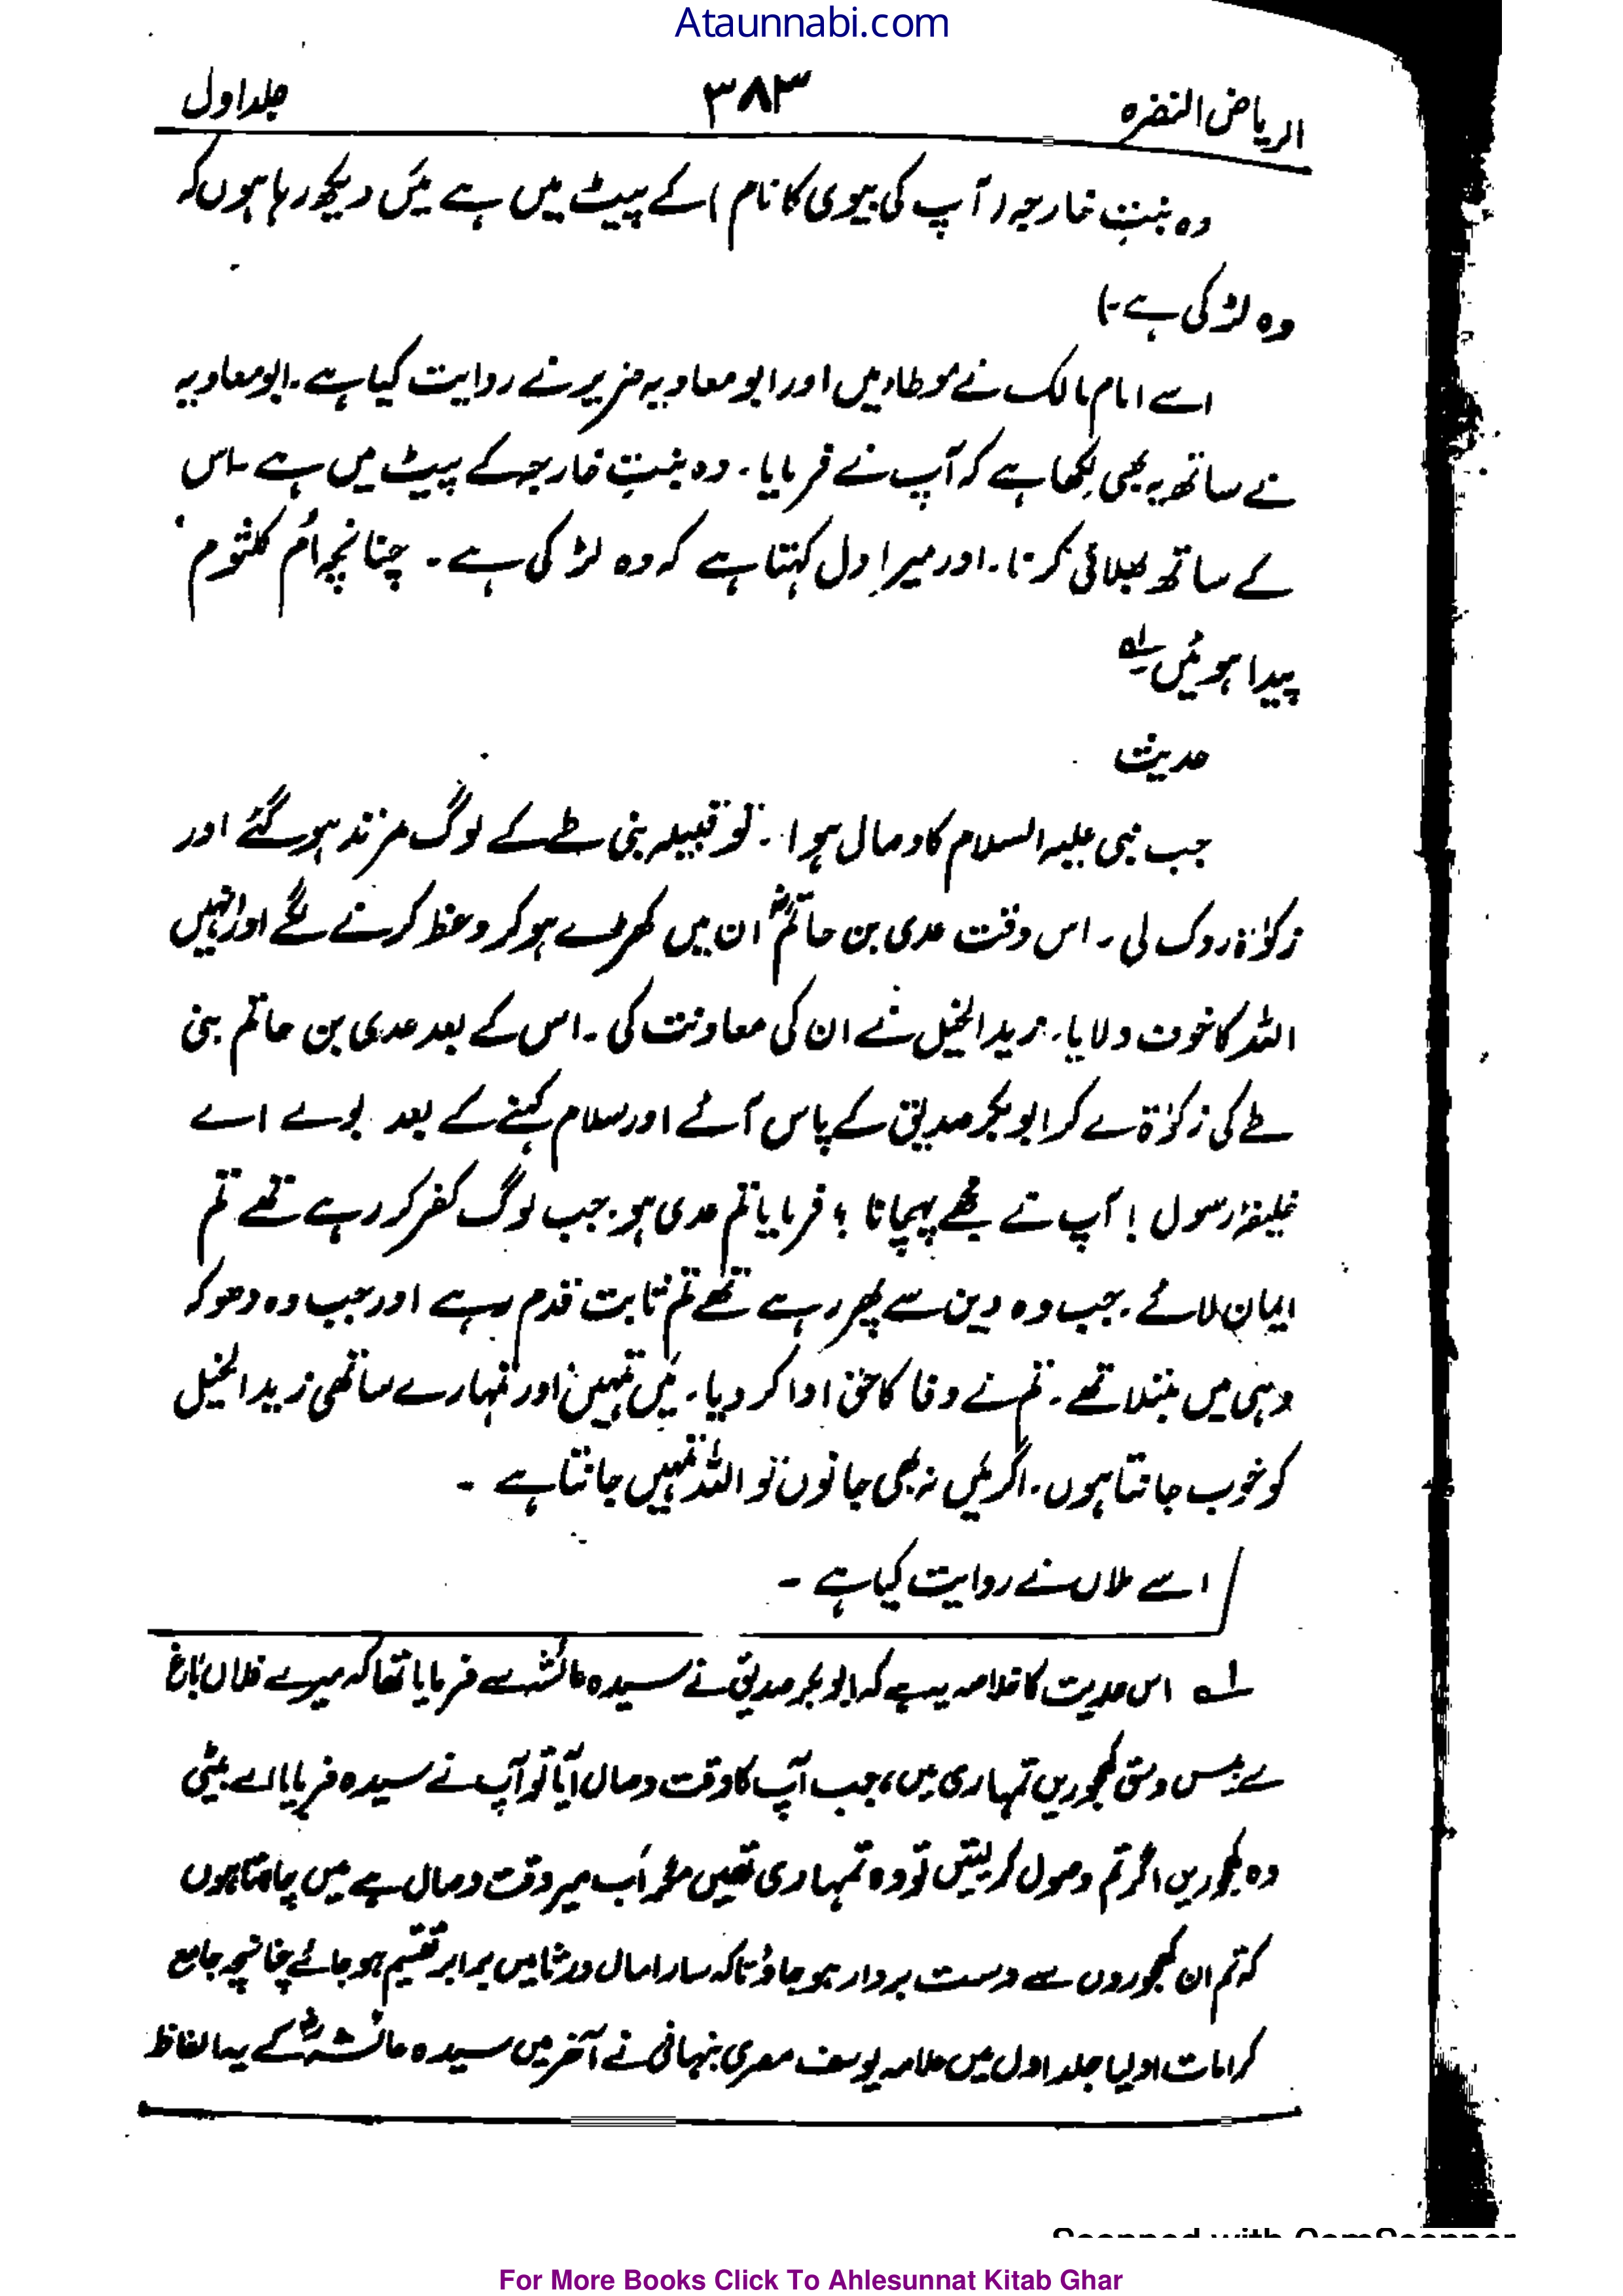 Ataunnabi.com
الریاض النضرہ ۳۸۳ جلد اول
وہ بنتِ خارجہ (آپ کی بیوی کا نام) کے پیٹ میں ہے میں دیکھ رہا ہوں کہ
وہ لڑکی ہے۔)
اسے امام مالک نے موطا میں اور ابو معاویہ ضریر نے روایت کیا ہے۔ ابو معاویہ
نے ساتھ یہ بھی لکھا ہے کہ آپ نے فرمایا۔ وہ بنتِ خارجہ کے پیٹ میں ہے۔ اس
کے ساتھ بھلائی کرنا۔ اور میرا دل کہتا ہے کہ وہ لڑکی ہے۔ چنانچہ اُم کلثوم
پیدا ہوئیں لہ
حدیث
جب نبی علیہ السلام کا وصال ہوا۔ تو قبیلہ بنی طے کے لوگ مرتد ہو گئے اور
زکوٰۃ روک لی۔ اس وقت عدی بن حاتمؓ ان میں کھڑے ہو کر وعظ کرنے لگے اور انہیں
اللہ کا خوف دلایا۔ زید الخیل نے ان کی معاونت کی۔ اس کے بعد عدی بن حاتم بنی
طے کی زکوٰۃ لے کر ابو بکر صدیق کے پاس آئے اور سلام کہنے کے بعد بولے اے
خلیفۂ رسول! آپ نے مجھے پہچانا؟ فرمایا تم عدی ہو۔ جب لوگ کفر کر رہے تھے تم
ایمان لائے۔ جب وہ دین سے پھر رہے تھے تم ثابت قدم رہے اور جب وہ دھوکہ
دہی میں مبتلا تھے۔ تم نے وفا کا حق ادا کر دیا۔ میں تمہیں اور تمہارے ساتھی زید الخیل
کو خوب جانتا ہوں۔ اگر میں نہ بھی جانوں تو اللہ تمہیں جانتا ہے۔
اسے ملاں نے روایت کیا ہے۔
لہ اس حدیث کا خلاصہ یہ ہے کہ ابو بکر صدیق نے سیدہ عائشہ سے فرمایا تھا کہ میرے فلاں باغ
سے بیس وسق کھجوریں تمہاری ہیں، جب آپ کا وقت وصال آیا تو آپ نے سیدہ فرمایا اے بیٹی
وہ کھجوریں اگر تم وصول کر لیتیں تو وہ تمہاری تھیں مگر اب میر وقت وصال ہے میں چاہتا ہوں
کہ تم ان کھجوروں سے دست بردار ہو جاؤ تاکہ سارا مال ورثا میں برابر تقسیم ہو جائے چنانچہ جامع
کرامات اولیا جلد اول میں علامہ یوسف مصری نبہانی نے آخر میں سیدہ عائشہؓ کے یہ الفاظ
For More Books Click To Ahlesunnat Kitab Ghar